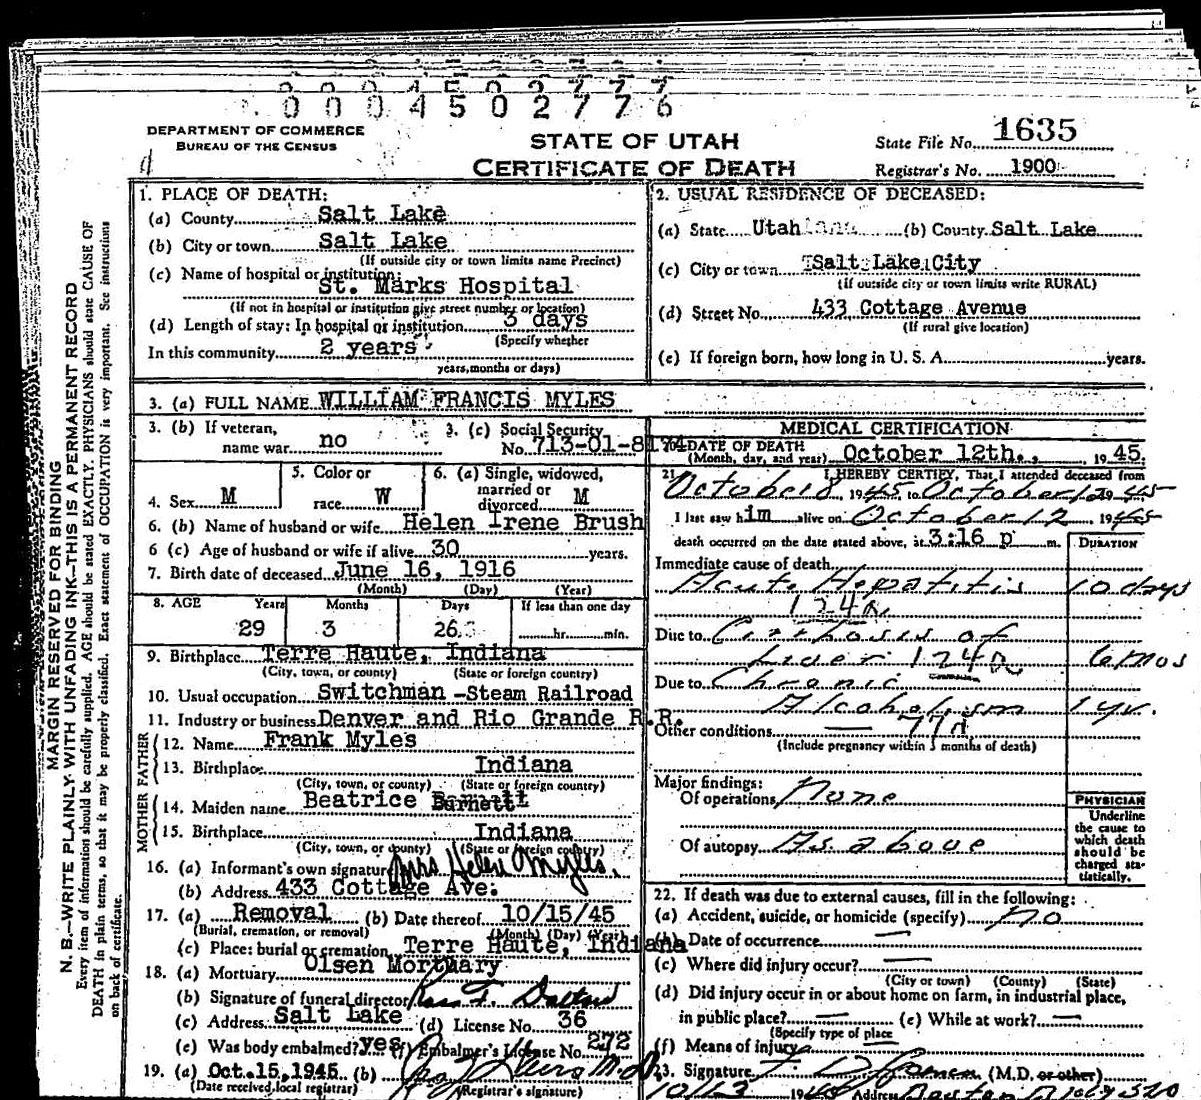 0 0 0 4 5 0 2 7 7 6
DEPARTMENT OF COMMERCE
BUREAU OF THE CENSUS
STATE OF UTAH
CERTIFICATE OF DEATH
State File No. 1635
Registrar's No. 1900
MARGIN RESERVED FOR BINDING
N. B.—WRITE PLAINLY WITH UNFADING INK—THIS IS A PERMANENT RECORD
Every item of information should be carefully supplied. AGE should be stated EXACTLY. PHYSICIANS should state CAUSE OF
DEATH in plain terms, so that it may be properly classified. Exact statement of OCCUPATION is very important. See instructions
on back of certificate.
1. PLACE OF DEATH:
(a) County Salt Lake
(b) City or town Salt Lake
(If outside city or town limits name Precinct)
(c) Name of hospital or institution:
St. Marks Hospital
(If not in hospital or institution give street number or location)
(d) Length of stay: In hospital or institution 3 days
(Specify whether
In this community 2 years
years, months or days)
2. USUAL RESIDENCE OF DECEASED:
(a) State Utah (b) County Salt Lake
(c) City or town Salt Lake City
(If outside city or town limits write RURAL)
(d) Street No. 433 Cottage Avenue
(If rural give location)
(e) If foreign born, how long in U. S. A. years.
3. (a) FULL NAME WILLIAM FRANCIS MYLES
3. (b) If veteran,
name war no
3. (c) Social Security
No. 713-01-8174
4. Sex M
5. Color or
race W
6. (a) Single, widowed,
married or
divorced M
6. (b) Name of husband or wife Helen Irene Brush
6 (c) Age of husband or wife if alive 30 years.
7. Birth date of deceased June 16, 1916
(Month) (Day) (Year)
8. AGE Years Months Days If less than one day
29 3 26 hr. min.
9. Birthplace Terre Haute, Indiana
(City, town, or county) (State or foreign country)
10. Usual occupation Switchman -Steam Railroad
11. Industry or business Denver and Rio Grande R.R.
FATHER
12. Name Frank Myles
13. Birthplace Indiana
(City, town, or county) (State or foreign country)
MOTHER
14. Maiden name Beatrice Burnett
15. Birthplace Indiana
(City, town, or county) (State or foreign country)
16. (a) Informant's own signature Mrs Helen Myles.
(b) Address 433 Cottage Ave.
17. (a) Removal (b) Date thereof 10/15/45
(Burial, cremation, or removal) (Month) (Day) (Year)
(c) Place: burial or cremation Terre Haute, Indiana
18. (a) Mortuary Olsen Mortuary
(b) Signature of funeral director
(c) Address Salt Lake (d) License No. 36
(e) Was body embalmed? yes (f) Embalmer's License No. 272
19. (a) Oct. 15, 1945 (b) M.D.
(Date received local registrar) (Registrar's signature)
MEDICAL CERTIFICATION
20. DATE OF DEATH
(Month, day, and year) October 12th., 1945.
21. I HEREBY CERTIFY, That I attended deceased from
October 8 1945, to October 12 1945
I last saw him alive on October 12 1945
death occurred on the date stated above, at 3:16 p m.
DURATION
Immediate cause of death
Acute Hepatitis 10 days
124a
Due to Cirrhosis of
Liver 124a 6 mos
Due to Chronic
Alcoholism 1 yr.
77d
Other conditions —
(Include pregnancy within 3 months of death)
Major findings:
Of operations None
Of autopsy As above
PHYSICIAN
Underline
the cause to
which death
should be
charged sta-
tistically.
22. If death was due to external causes, fill in the following:
(a) Accident, suicide, or homicide (specify) no
(b) Date of occurrence —
(c) Where did injury occur? —
(City or town) (County) (State)
(d) Did injury occur in or about home on farm, in industrial place,
in public place? — (e) While at work? —
(Specify type of place
(f) Means of injury —
23. Signature (M.D. or other)
10/13 1945 Address